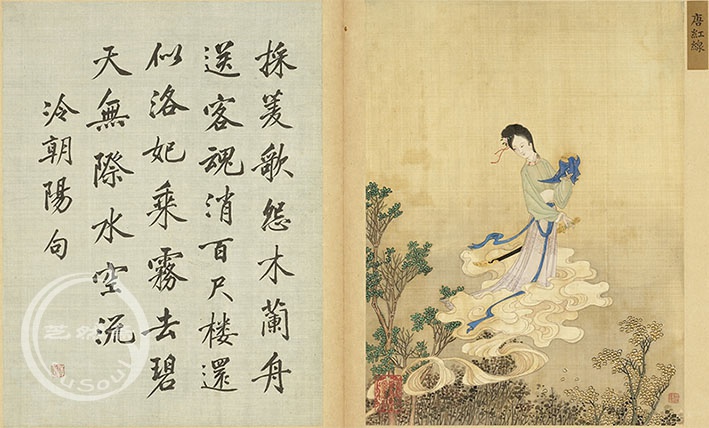 唐紅線
採菱歌怨木蘭舟
送客魂消百尺楼還
似洛妃乘霧去碧
天無際水空流
冷朝陽句